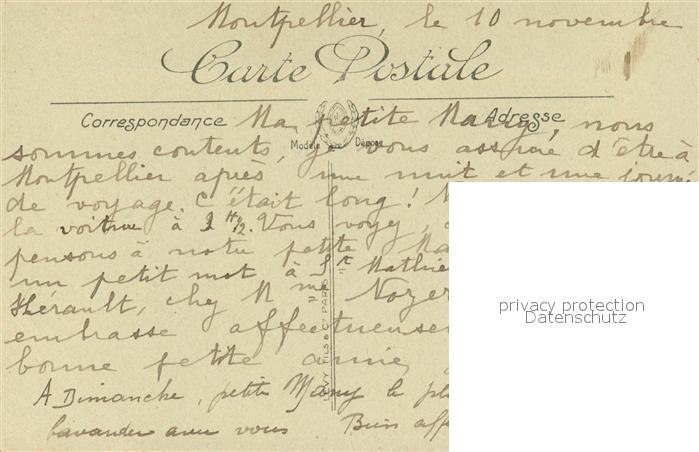 Montpellier, le 10 novembre
Carte Postale
Correspondance Adresse
Modèle Déposé
Ma petite Mary, nous
sommes contents, je vous assure d'être à
Montpellier après une nuit et une journé
de voyage. C'était long !
la voiture à 2 H 1/2. Vous voyez,
pensons à notre petite Ma
un petit mot à St Mathie
Hérault, chez Mme Noyer
embrasse affectueuse
bonne petite amie,
A Dimanche, petite Mary le pl
bavarder avec vous Bien aff
LEVY FILS & Cie PARIS
privacy protection
Datenschutz